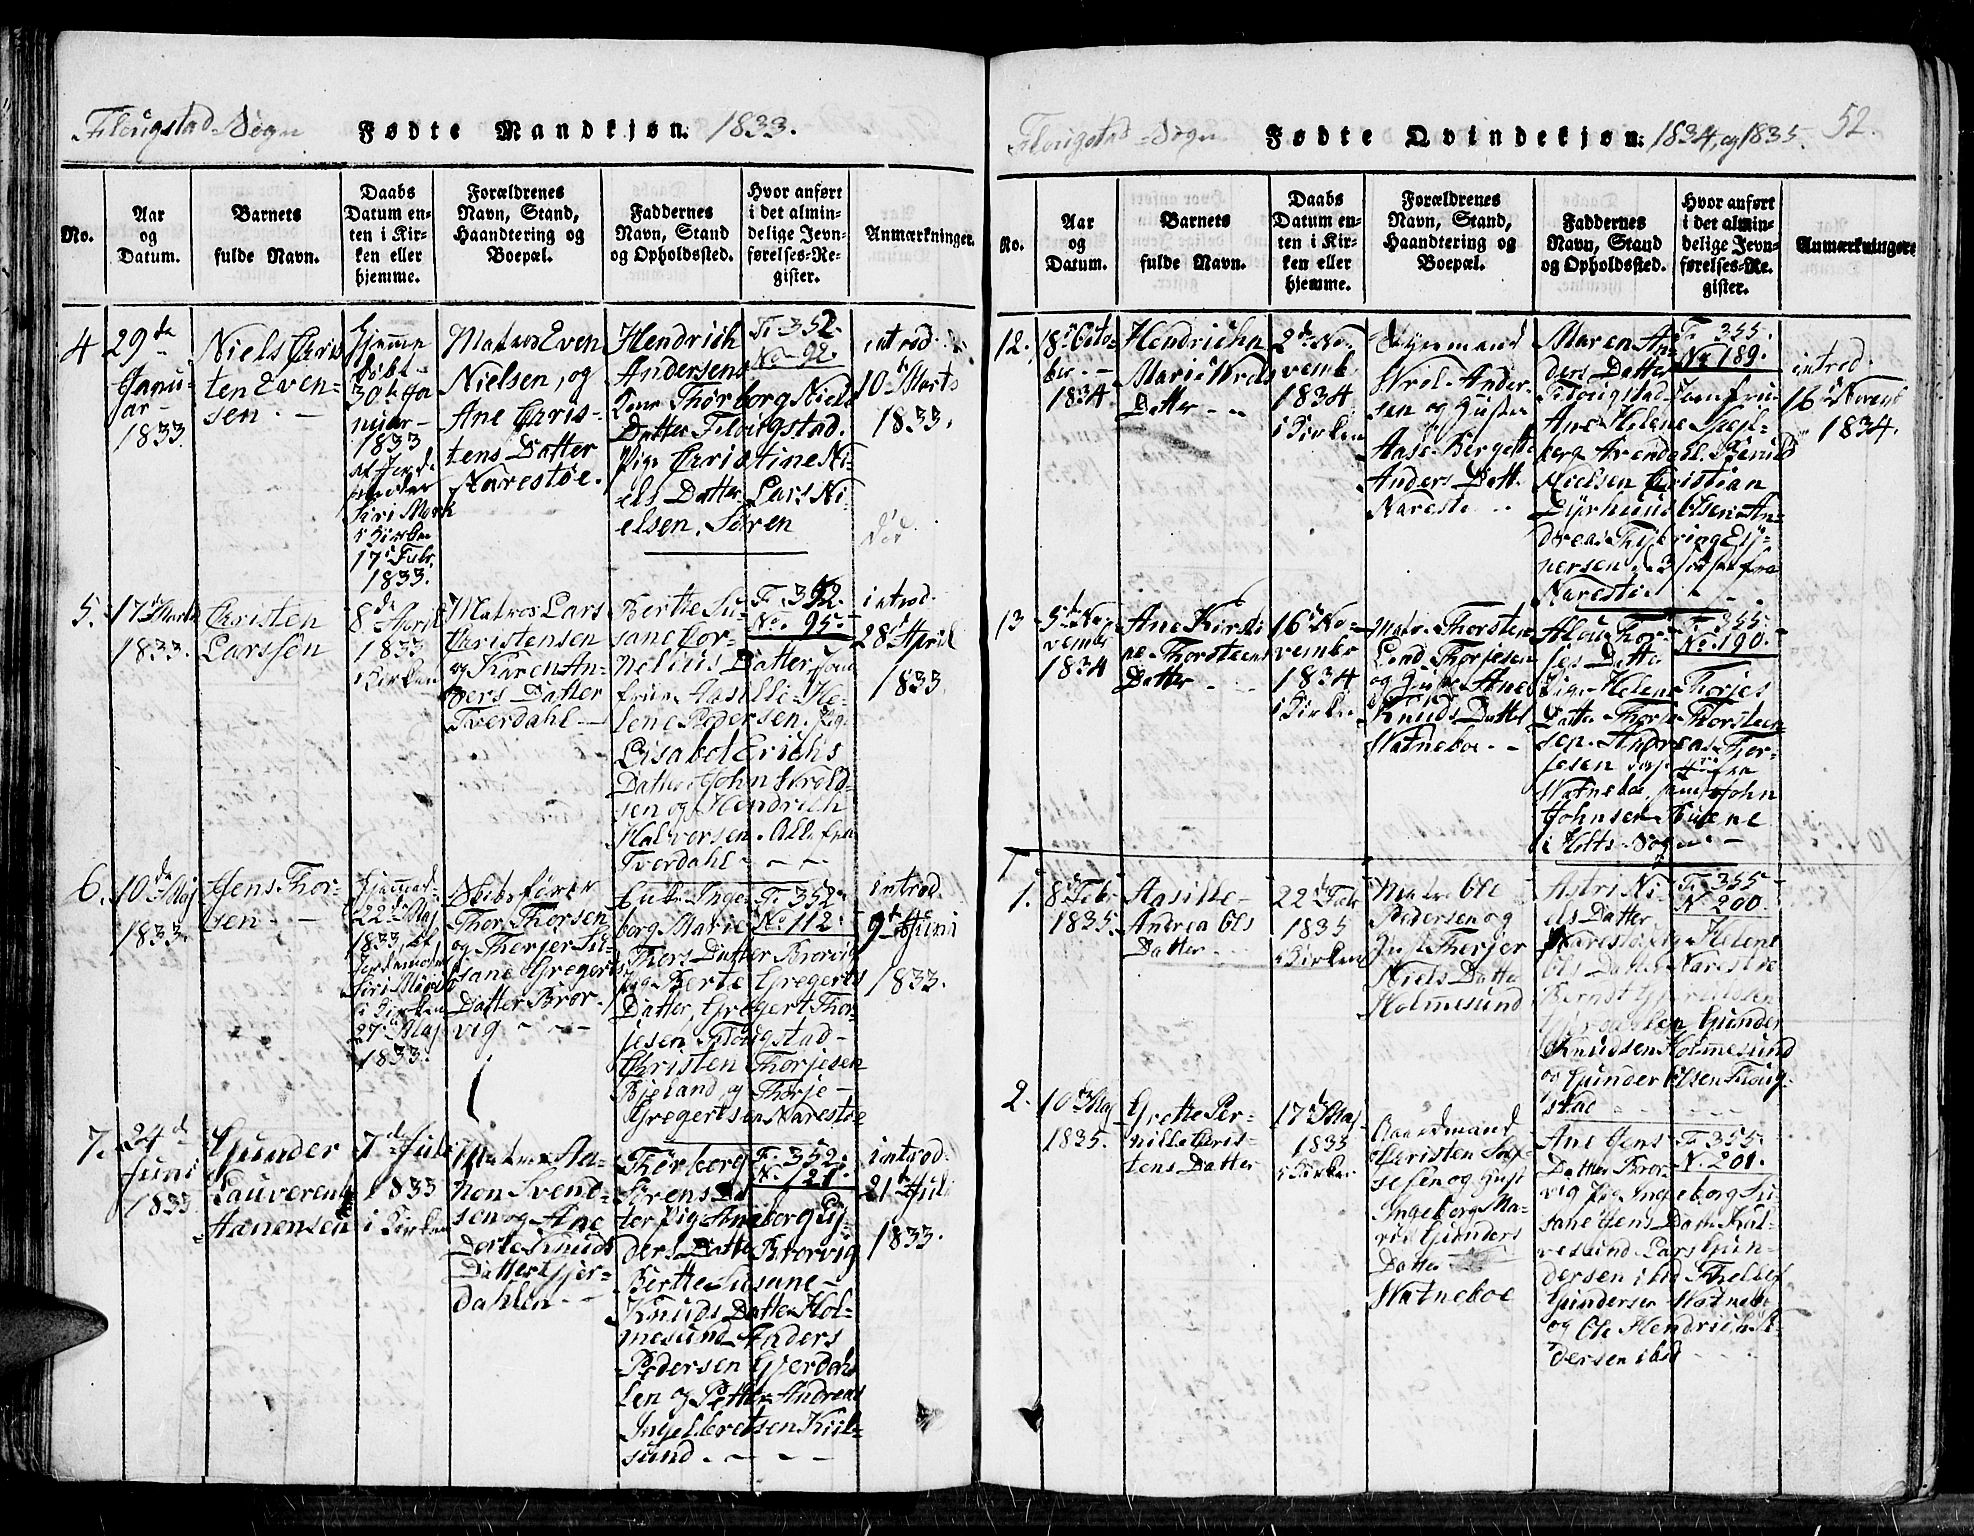 Flougstad Sogn Fødte Mandkjøn. 1833.
No.
Aar
og
Datum.
Barnets
fulde Navn.
Daabs
Datum en-
ten i Kir-
ken eller
hjemme.
Forældrenes
Navn, Stand,
Haandtering og
Boepæl.
Faddernes
Navn, Stand
og Opholdssted.
Hvor anført
i det almin-
delige Jevn-
førelses-Re-
gister.
Anmærkninger.
4
29de
Janu-
ar
1833.
Niels Chris
ten Even-
sen.
Hjemme
døbt
30te Ja
nuar
1833
af Jorde
moder
Siri Mørk
i Kirken
17de Febr.
1833.
Matros Even
Nielsen, og
Ane Chris-
tens Datter
Narestøe.
Hendrich
Andersens
Kone Thorborg Niels
Datter Flougstad.
Pige Christine Ni-
els Datter Lars Ni-
elsen. Søren
F. 352.
No. 92.
introd.
10de Marts
1833.
5.
17de Marts
1833.
Christen
Larssen
8de April
1833
i Kirken
Matros Lars
Christensen
og Karen An-
ders Datter
Tverdahl
Berthe Su-
sane Cor-
nelius Datter Jom
frue Aasille He-
lene Pedersen. Pige
Lisabet Erichs
Datter John Wrold-
sen og Hendrich
Halvorsen. Alle fra
Tverdahl
F. 352.
No. 95.
introd.
28de April
1833.
6.
10de Maj
1833.
Jens Thor-
sen
Hjemme
22de Maj
1833, af
Jordemoder
Siri Mørk
i Kirken
27de Maj
1833.
Skibsfører
Thor Thorsen
og Thorjer Su-
sane Gregerts
Datter Bror-
vig
Enke Inge-
borg Marie
Thors Datter Brorvig
Pig. Berte Gregerts
Datter, Gregert Thor-
jesen Flougstad
Christen Thorjesen
Bjeland og Thorje
Gregertsen Narestøe
F. 352.
No. 112.
introd.
9de Juni
1833.
7.
24de
Juni
1833
Gunder
Lauverents
Aanensen
7de Juli
1833
i Kirken
Matros Aa-
non Svend-
sen og Ane
Dorte Knuds
Datter Gjer-
dahlen
Thorborg
Sørens Dat
ter Pig. Aneborg Gun-
ders Datter Brorvig
Berthe Susane
Knuds Datter Hol-
mesund Anders
Pedersen Gjerdah-
len og Petter Andreas
Ingelbretsen Kiil-
sund
F. 352.
N. 121.
introd.
21de Juli
1833.
Flougstad Sogn Fødte Qvindekjøn. 1834, og 1835. 52.
No.
Aar
og
Datum.
Barnets
fulde Navn.
Daabs
Datum en-
ten i Kir-
ken eller
hjemme.
Forældrenes
Navn, Stand,
Haandtering og
Boepæl.
Faddernes
Navn, Stand
og Opholdssted.
Hvor anført
i det almin-
delige Jevn-
førelses-Re-
gister.
Anmærkninger
12.
8de Octo-
ber
1834
Hendriche
Marie Wrols
Datter
2de No-
vemb.
1834
i Kirken
Wrol Ander-
sen og Hustru
Aase Bergette
Anders Datt.
Narestøe
Maren An-
ders Datter
Flougstad Jomfrue
Ane Helene Spejl-
berg Arendahl. Knud
Nielsen Christian
Dyrhuus Olsen An-
dreas
Narestøe
F. 355.
No. 189.
introd.
16de Novemb
1834.
13
5te No-
vemb
1834
Ane Kirsti-
ne Thorsteens
Datter
16de No-
vember
1834
i Kirken
Matr. Thorsten
Lend Thorjesen
og Hustr. Ane
Knuds Datter
Watneboe
Alou Thor-
jes Datter
Pige Helene Thorjes
Datter Thorje Thorsteen
sen. Andreas Thor-
jesen
Watneboe, samt John
Johnsen
i Holts Sogn
F. 355.
No. 190.
1.
8de Febr.
1835.
Aasille
Andrea Ols
Datter
22de Febr.
1835
i Kirken
Matro Ole
Pedersen og
Hust Thorjer
Niels Datter
Holmesund
Astri Ni-
els Datter
Narestøe, og Helene
Ols Datter Narestøe
Berndt
Gunder
Knudsen Holmesund
og Gunder Olsen Floug-
stad
F. 355
N. 200.
2.
10de Maj
1835.
Grethe Per-
nille Chris-
tens Datter
17de Maj
1835
i Kirken.
Gaardmand
Christen
sesen og Hust
Ingeborg Ma-
rie Gunders
Datter
Watneboe
Ane Jens
Datter Bror-
vig Pig. Ingeborg Su-
sane Jens Datter Kal-
vesund Lars Gun-
dersen ibid
Gundersen Watnebo
og Ole Hendrich
dersen ibid
F. 355.
N. 201.